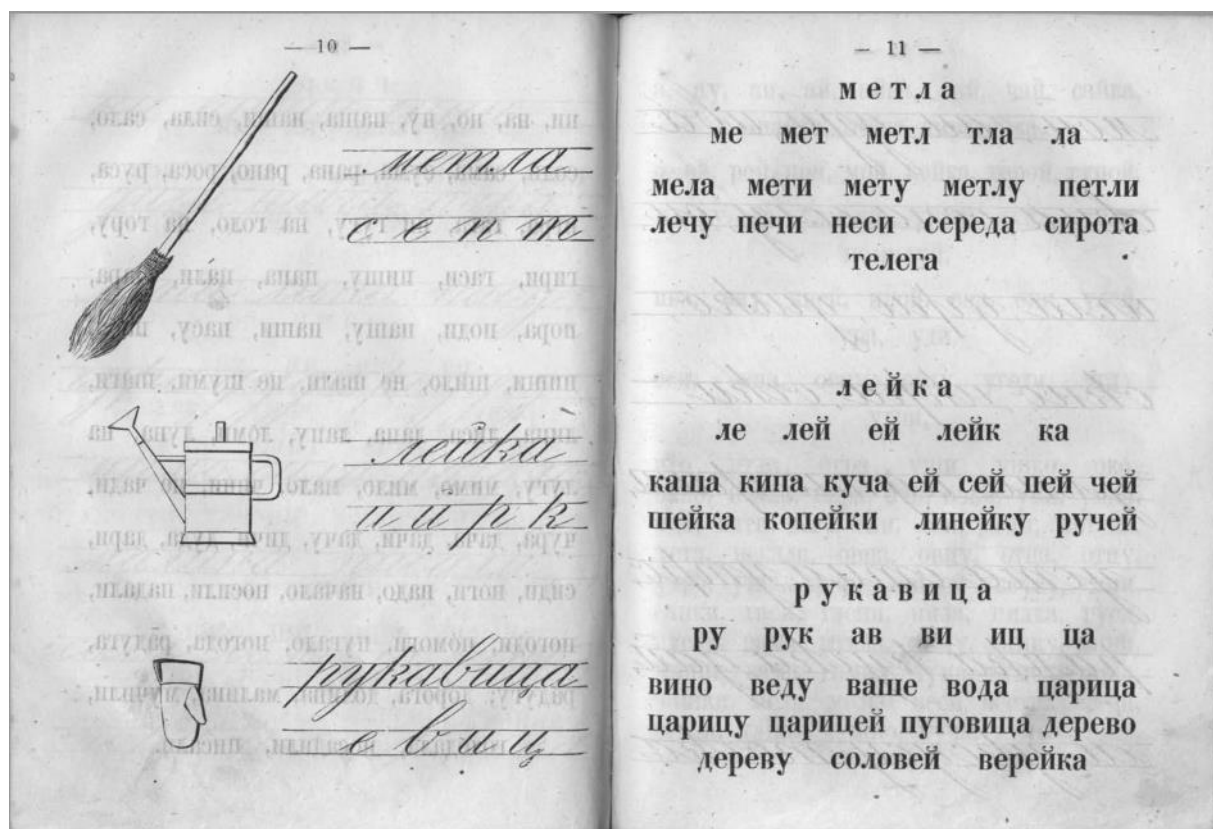 — 10 —
метла
с е п т
лейка
и й р к
рукавица
е в и ц
— 11 —
метла
ме мет метл тла ла
мела мети мету метлу петли
лечу печи неси середа сирота
телега
лейка
ле лей ей лейк ка
каша кипа куча ей сей пей чей
шейка копейки линейку ручей
рукавица
ру рук ав ви иц ца
вино веду ваше вода царица
царицу царицей пуговица дерево
дереву соловей верейка